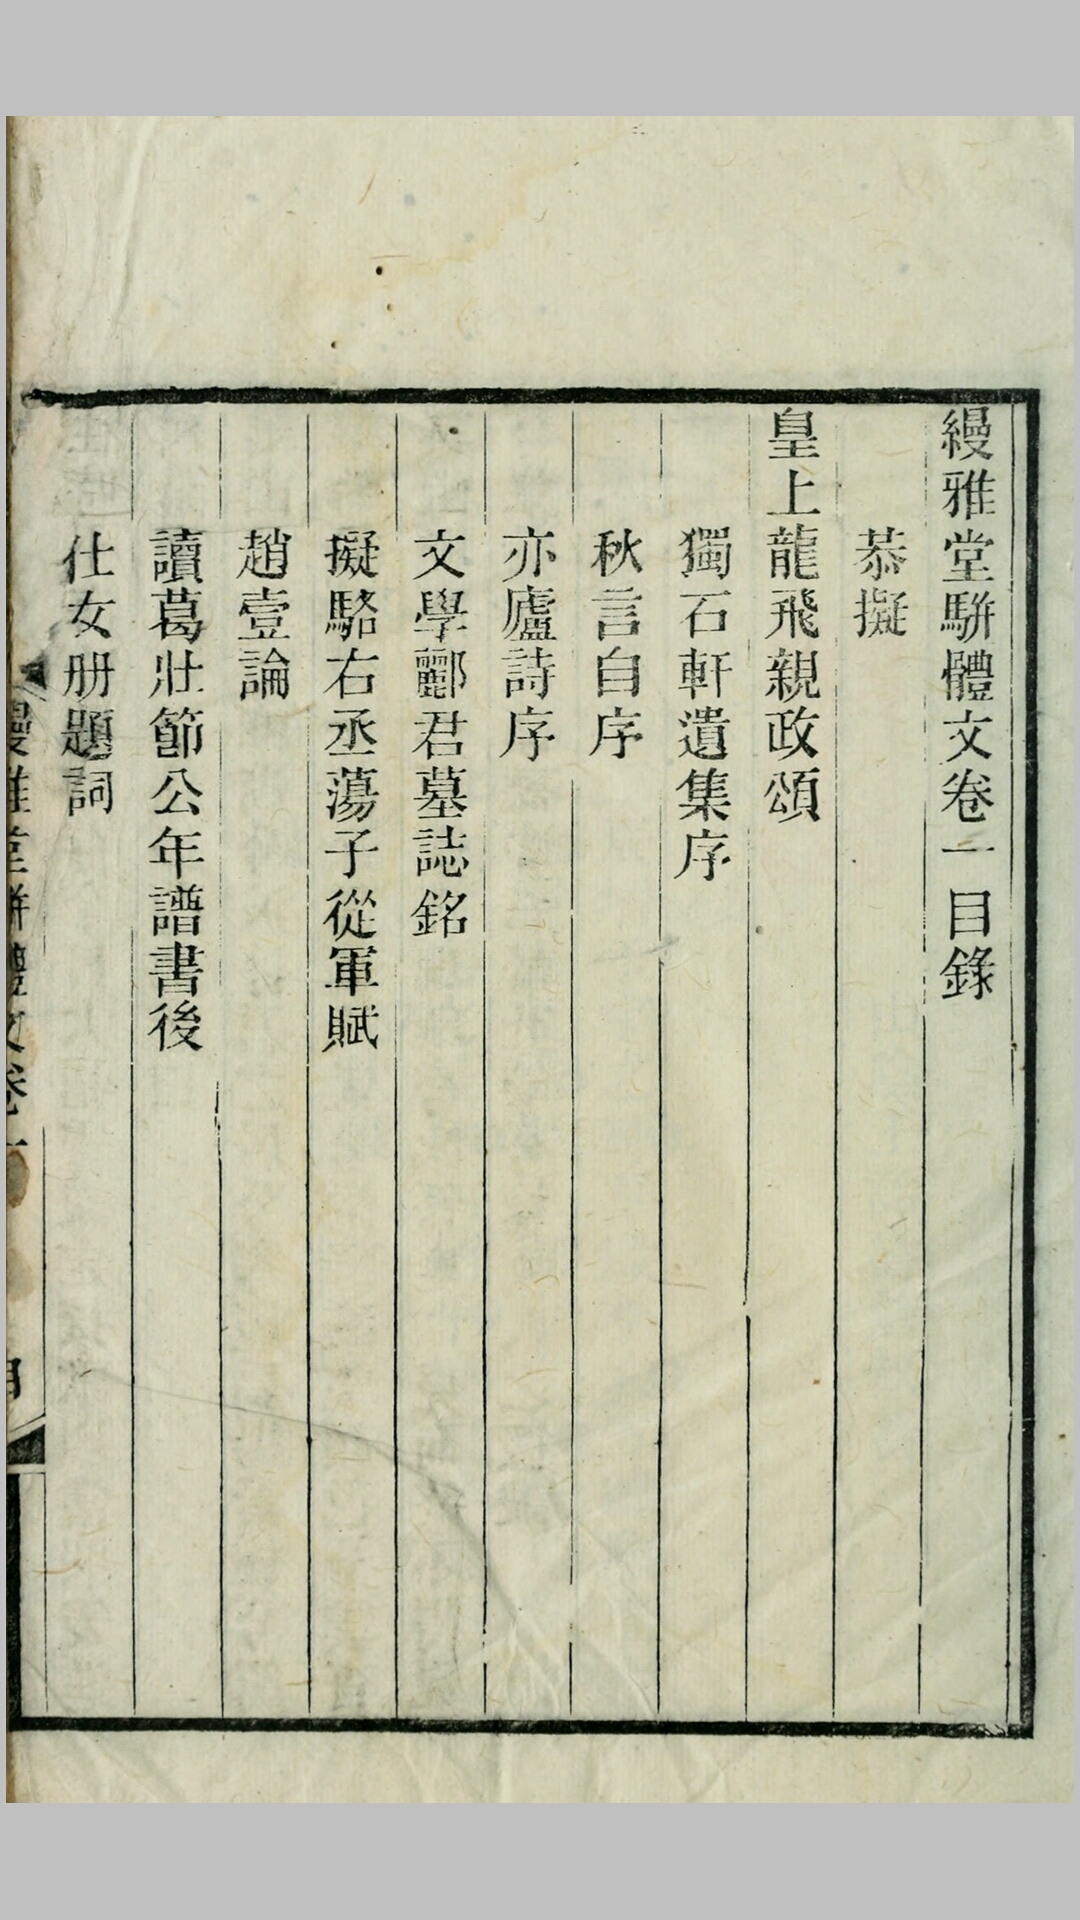 縵雅堂駢體文卷一目錄
恭擬
皇上龍飛親政頌
獨石軒遺集序
秋言自序
亦廬詩序
文學酈君墓誌銘
擬駱右丞蕩子從軍賦
趙壹論
讀葛壯節公年譜書後
仕女册題詞
縵雅堂駢體文卷一
目